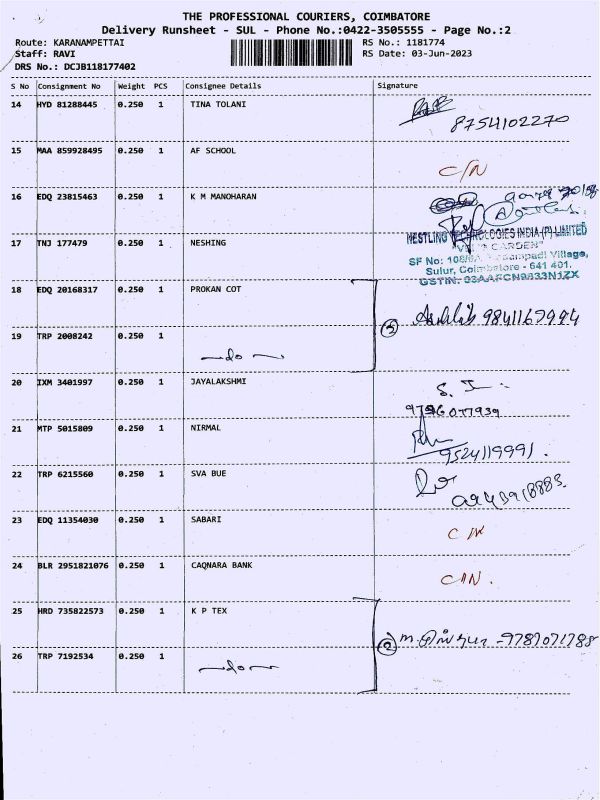 THE PROFESSIONAL COURIERS, COIMBATORE
Delivery Runsheet - SUL - Phone No.:0422-3505555 - Page No.:2
Route: KARANAMPETTAI RS No.: 1181774
Staff: RAVI RS Date: 03-Jun-2023
DRS No.: DCJB118177402
S No Consignment No Weight PCS Consignee Details Signature
14 HYD 81288445 0.250 1 TINA TOLANI
8754102270
15 MAA 859928495 0.250 1 AF SCHOOL
C/N
16 EDQ 23815463 0.250 1 K M MANOHARAN
NESTLING TECHNOLOGIES INDIA (P) LIMITED
17 TNJ 177479 0.250 1 NESHING
GARDEN"
SF No: Village,
Sulur, Coimbatore - 641 401.
GSTIN: 33AAFCN9833N1ZX
18 EDQ 20168317 0.250 1 PROKAN COT
9841167994
19 TRP 2008242 0.250 1
-do-
20 IXM 3401997 0.250 1 JAYALAKSHMI
S. I
21 MTP 5015809 0.250 1 NIRMAL
9524119991.
22 TRP 6215560 0.250 1 SVA BUE
23 EDQ 11354030 0.250 1 SABARI
C/N
24 BLR 2951821076 0.250 1 CAQNARA BANK
C/N.
25 HRD 735822573 0.250 1 K P TEX
2 9787071788
26 TRP 7192534 0.250 1
-do-